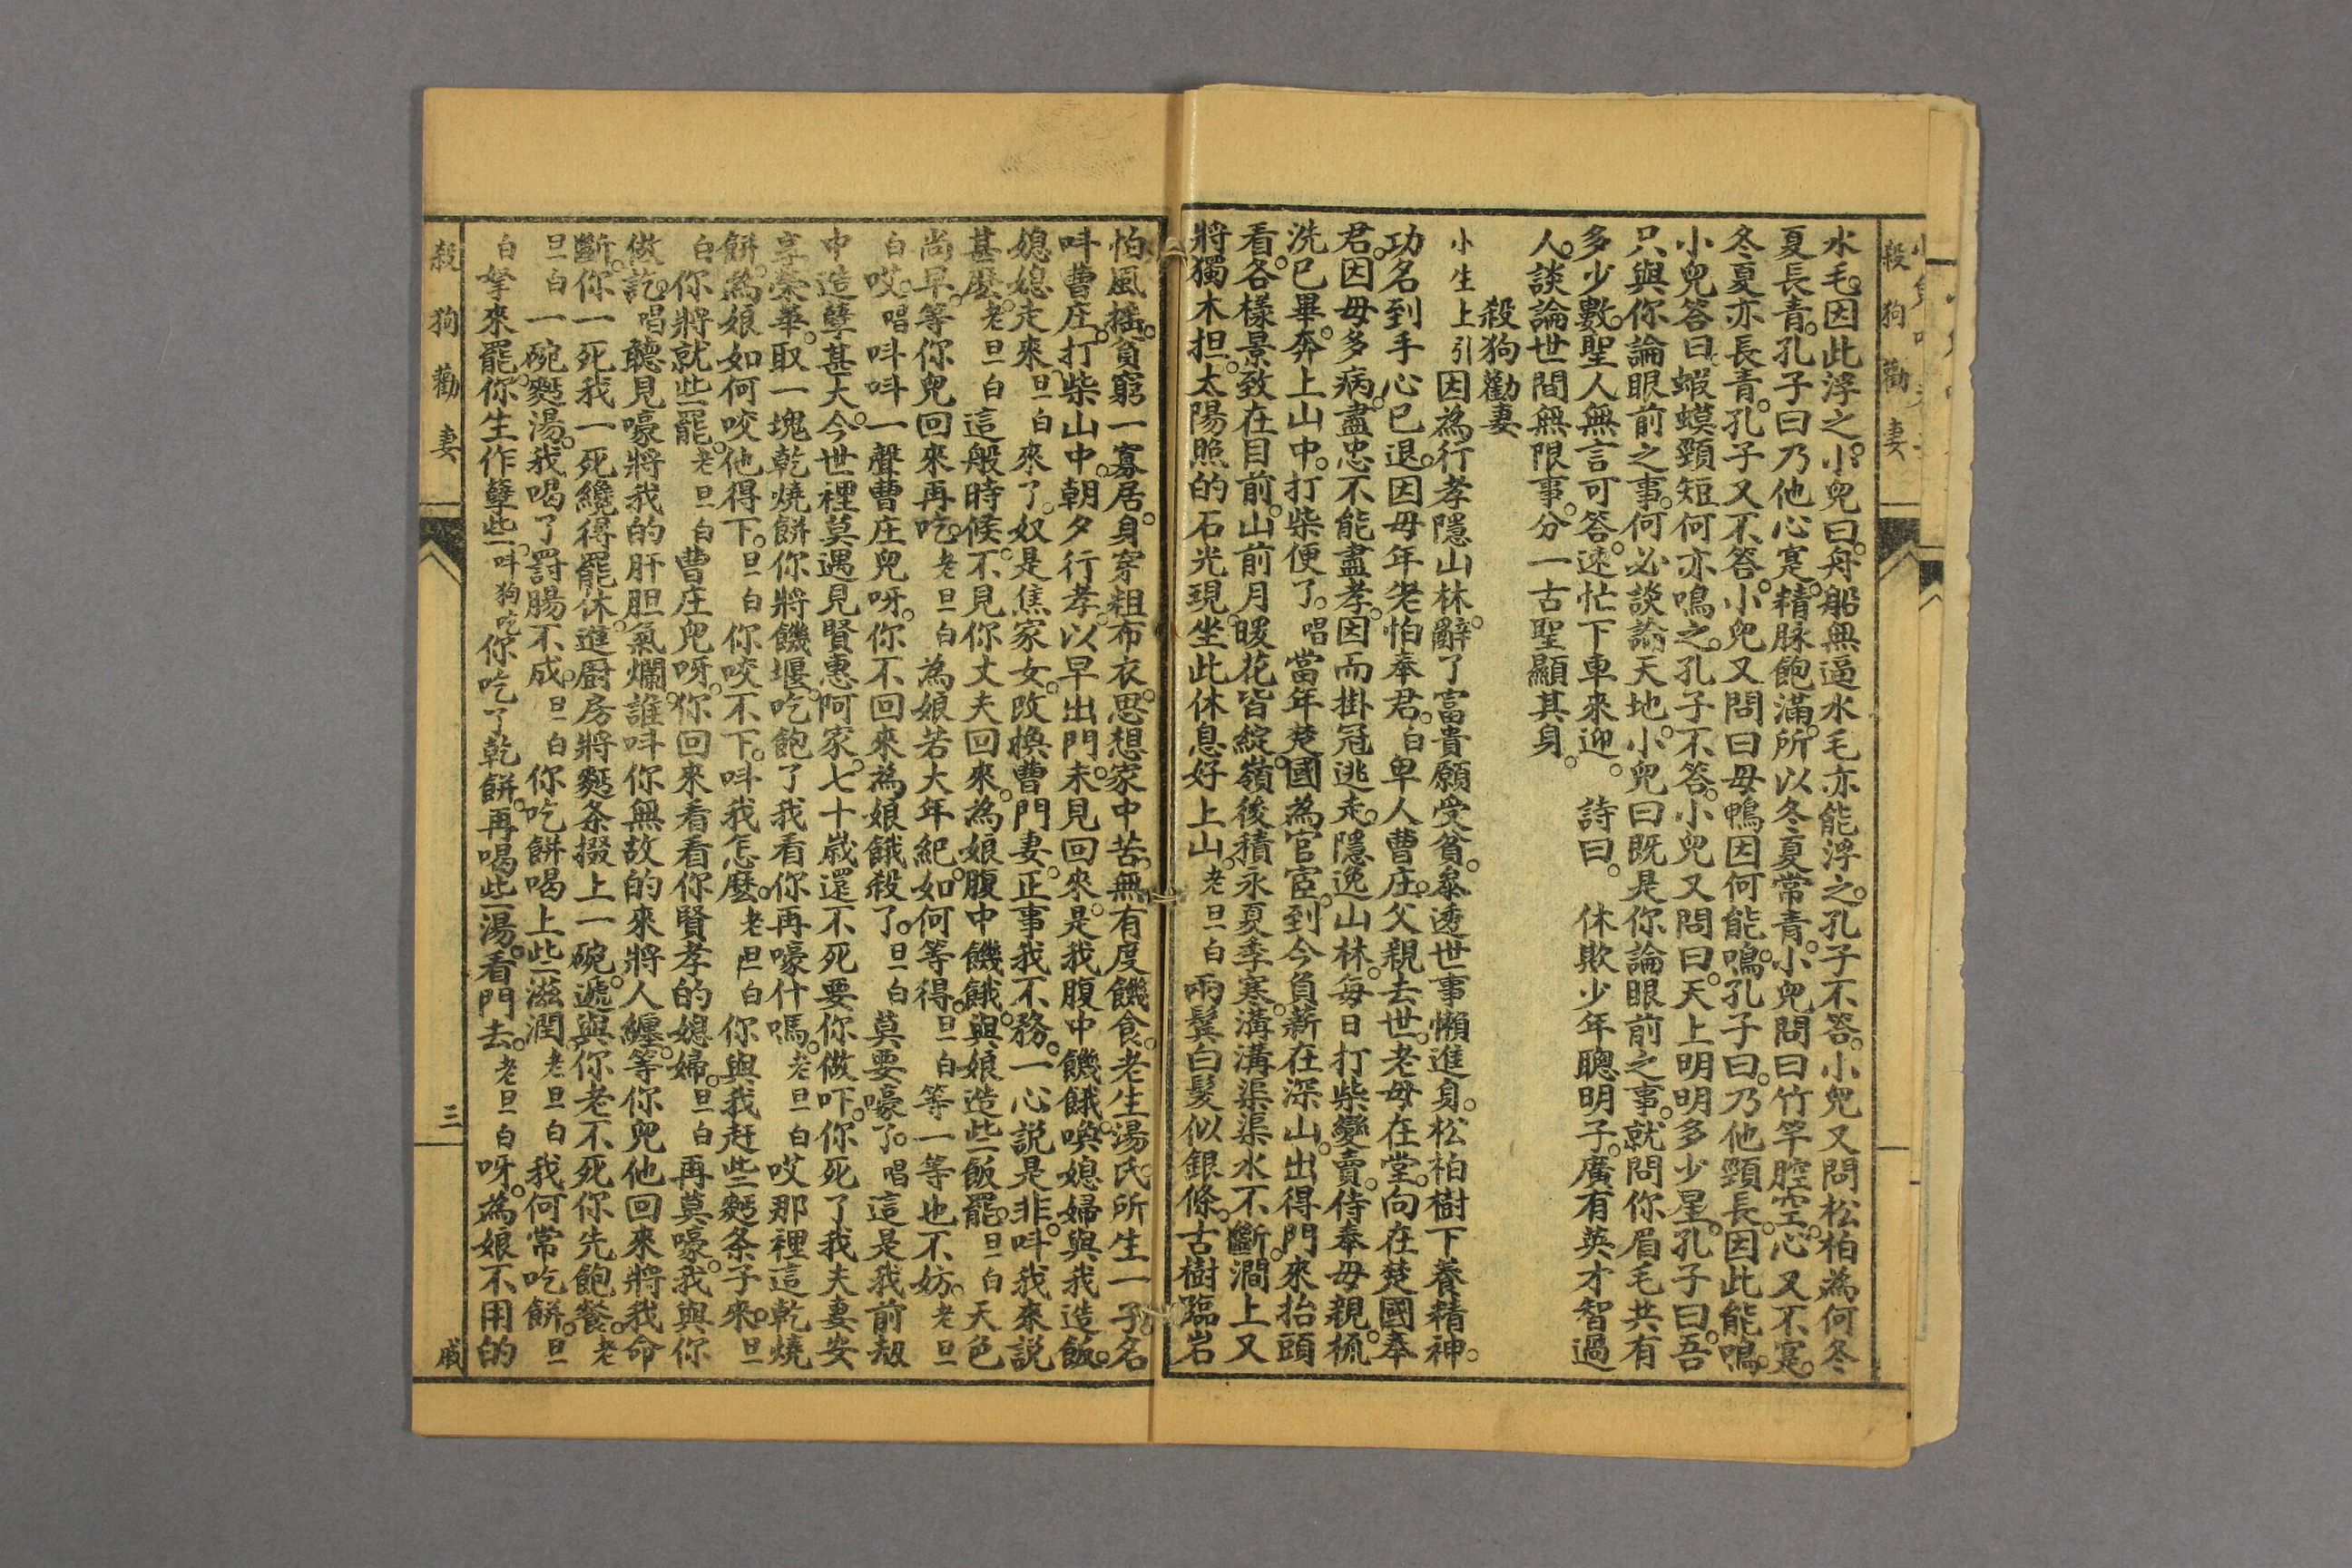 殺狗勸妻
水毛。因此浮之。小兒曰。舟船無逼水毛亦能浮之。孔子不答。小兒又問松柏為何冬
夏長青。孔子曰乃他心寔。精脉飽滿。所以冬夏常青。小兒問曰竹竿腔空。心又不寔。
冬夏亦長青。孔子又不答。小兒又問曰母鴨因何能鳴。孔子曰。乃他頸長。因此能鳴。
小兒答曰。蝦蟆頸短何亦鳴之。孔子不答。小兒又問曰。天上明明多少星。孔子曰。吾
只與你論眼前之事。何必談論天地。小兒曰既是你論眼前之事。就問你眉毛共有
多少數。聖人無言可答。速忙下車來迎。 詩曰。 休欺少年聰明子。廣有英才智過
人。談論世間無限事。分一古聖顯其身。
殺狗勸妻
小生上引因為行孝隱山林。辭了富貴願受貧。叅透世事懶進身。松柏樹下養精神。
功名到手心已退。因母年老怕奉君。白卑人曹庄。父親去世。老母在堂。向在楚國奉
君。因母多病。盡忠不能盡孝。因而掛冠逃走。隱逸山林。每日打柴變賣。侍奉母親。梳
洗已畢。奔上山中。打柴便了。唱當年楚國為官宦。到今負薪在深山。出得門來抬頭
看。各樣景致在目前。山前月暖花皆綻。嶺後積永夏季寒。溝溝渠渠水不斷。澗上又
將獨木担。太陽照的石光現。坐此休息好上山。老旦白兩鬢白髮似銀條。古樹臨岩
怕風搖。貧窮一寡居。身穿粗布衣。思想家中苦。無有度饑食。老生湯氏。所生一子。名
呌曹庄。打柴山中。朝夕行孝。以早出門。未見回來。是我腹中饑餓。喚媳婦與我造飯。
媳媳走來。旦白來了。奴是焦家女。改換曹門妻。正事我不務。一心説是非。呌我來説
甚麽。老旦白這般時候。不見你丈夫回來。為娘腹中饑餓。與娘造些飯罷。旦白天色
尚早。等你兒回來再吃。老旦白為娘若大年紀。如何等得。旦白等一等也不妨。老旦
白哎。唱呌呌一聲曹庄兒呀。你不回來為娘餓殺了。旦白莫要嚎了。唱這是我前刼
中造孽甚大。今世裡莫遇見賢惠阿家。七十歲還不死要你做吓。你死了我夫妻安
享榮華。取一塊乾燒餅你將饑堰。吃飽了我看你再嚎什嗎。老旦白哎那裡這乾燒
餅。為娘如何咬他得下。旦白你咬不下。呌我怎麽。老旦白你與我赶些麪条子來。旦
白你將就些罷。老旦白曹庄兒呀。你回來看看你賢孝的媳婦。旦白再莫嚎。我與你
做訖。唱聽見嚎將我的肝胆氣爛。誰呌你無故的來將人纏。等你兒他回來將我命
斷。你一死我一死纔得罷休。進厨房將麪条掇上一碗。遞與你老不死你先飽餐。老
旦白一碗麪湯。我喝了罸腸不成。旦白你吃餅喝上些滋潤。老旦白我何常吃餅。旦
白拏來罷。你生作孽些。呌狗吃你吃了乾餅。再喝些湯。看門去。老旦白呀。為娘不用的
殺狗勸妻
三